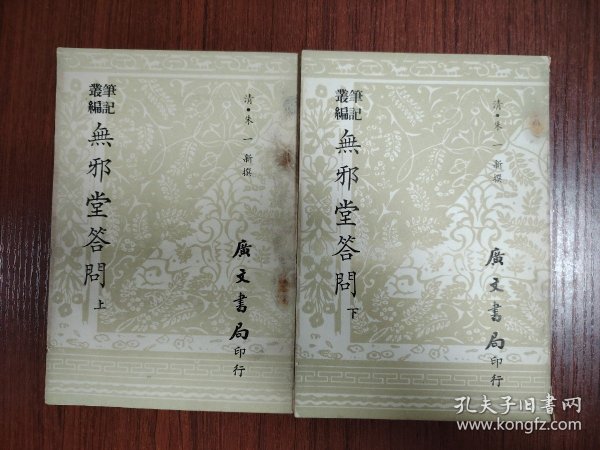 清·朱一新撰
筆記
叢編
無邪堂答問 上
廣文書局印行
清·朱一新撰
筆記
叢編
無邪堂答問 下
廣文書局印行
孔夫子旧书网
www.kongfz.com